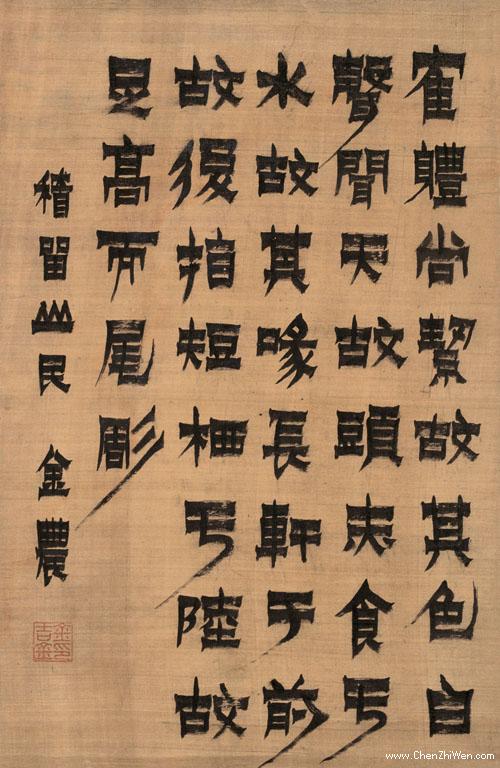 寉軆尚絜故其色白
聲聞天故頭赤食亏
水故其喙長軒于前
故後指短栖亏陸故
足高而尾彫
稽留山民 金農
www.ChenZhiWen.com